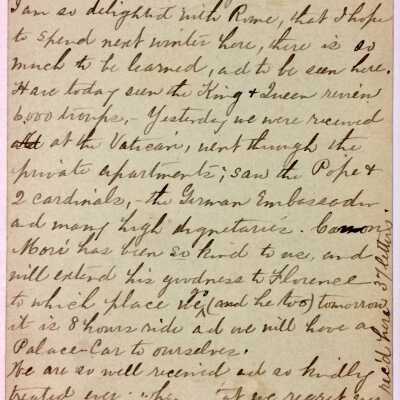 I am so delighted with Rome, that I hope
to spend next winter here, there is so
much to be learned, ad to be seen here.
Have today seen the King & Queen review
6,000 troops,- Yesterday we were received
at the Vatican, went through the
private apartments; saw the Pope &
2 cardinals, - the German Embassador
ad many high dignetaries. Canon
Moré has been so kind to us, and
will extend his goodness to Florence
to which place we go (and he too) tomorrow
it is 8 hours ride ad we will have a
Palace-Car to ourselves.
We are so well received ad so kindly
treated ever we regret
rec'd here 37 letters.